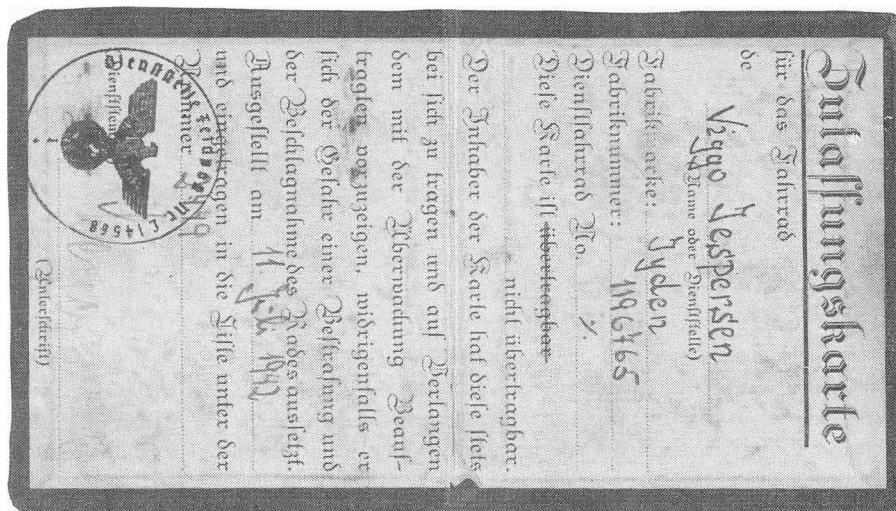 Zulassungskarte
für das Fahrrad
de
Viggo Jespersen
(Name oder Dienststelle)
Fabrikmarke: Jyden
Fabriknummer: 196765
Dienstfahrrad No. ./.
Diese Karte ist übertragbar
nicht übertragbar.
Der Inhaber der Karte hat diese stets
bei sich zu tragen und auf Verlangen
dem mit der Überwachung Beauf-
tragten vorzuzeigen, widrigenfalls er
sich der Gefahr einer Bestrafung und
der Beschlagnahme des Rades aussetzt.
Ausgestellt am 11 Juli 1942
und eingetragen in die Liste unter der
Nummer
Dienststempel
Nr. L 14568
(Unterschrift)